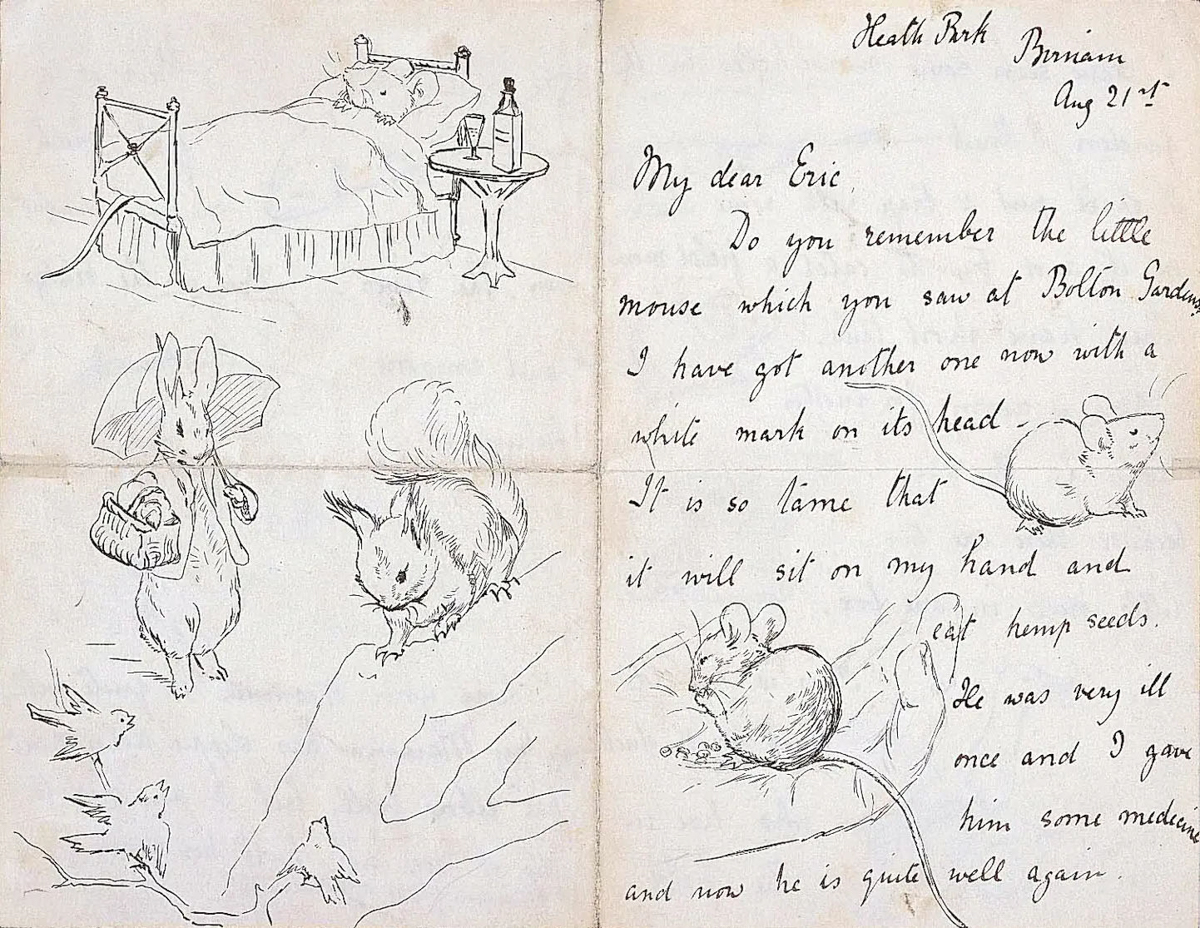 Heath Park
Birnam
Aug 21st
My dear Eric,
Do you remember the little
mouse which you saw at Bolton Gardens
I have got another one now with a
white mark on its head -
It is so tame that
it will sit on my hand and
eat hemp seeds.
He was very ill
once and I gave
him some medecine
and now he is quite well again.